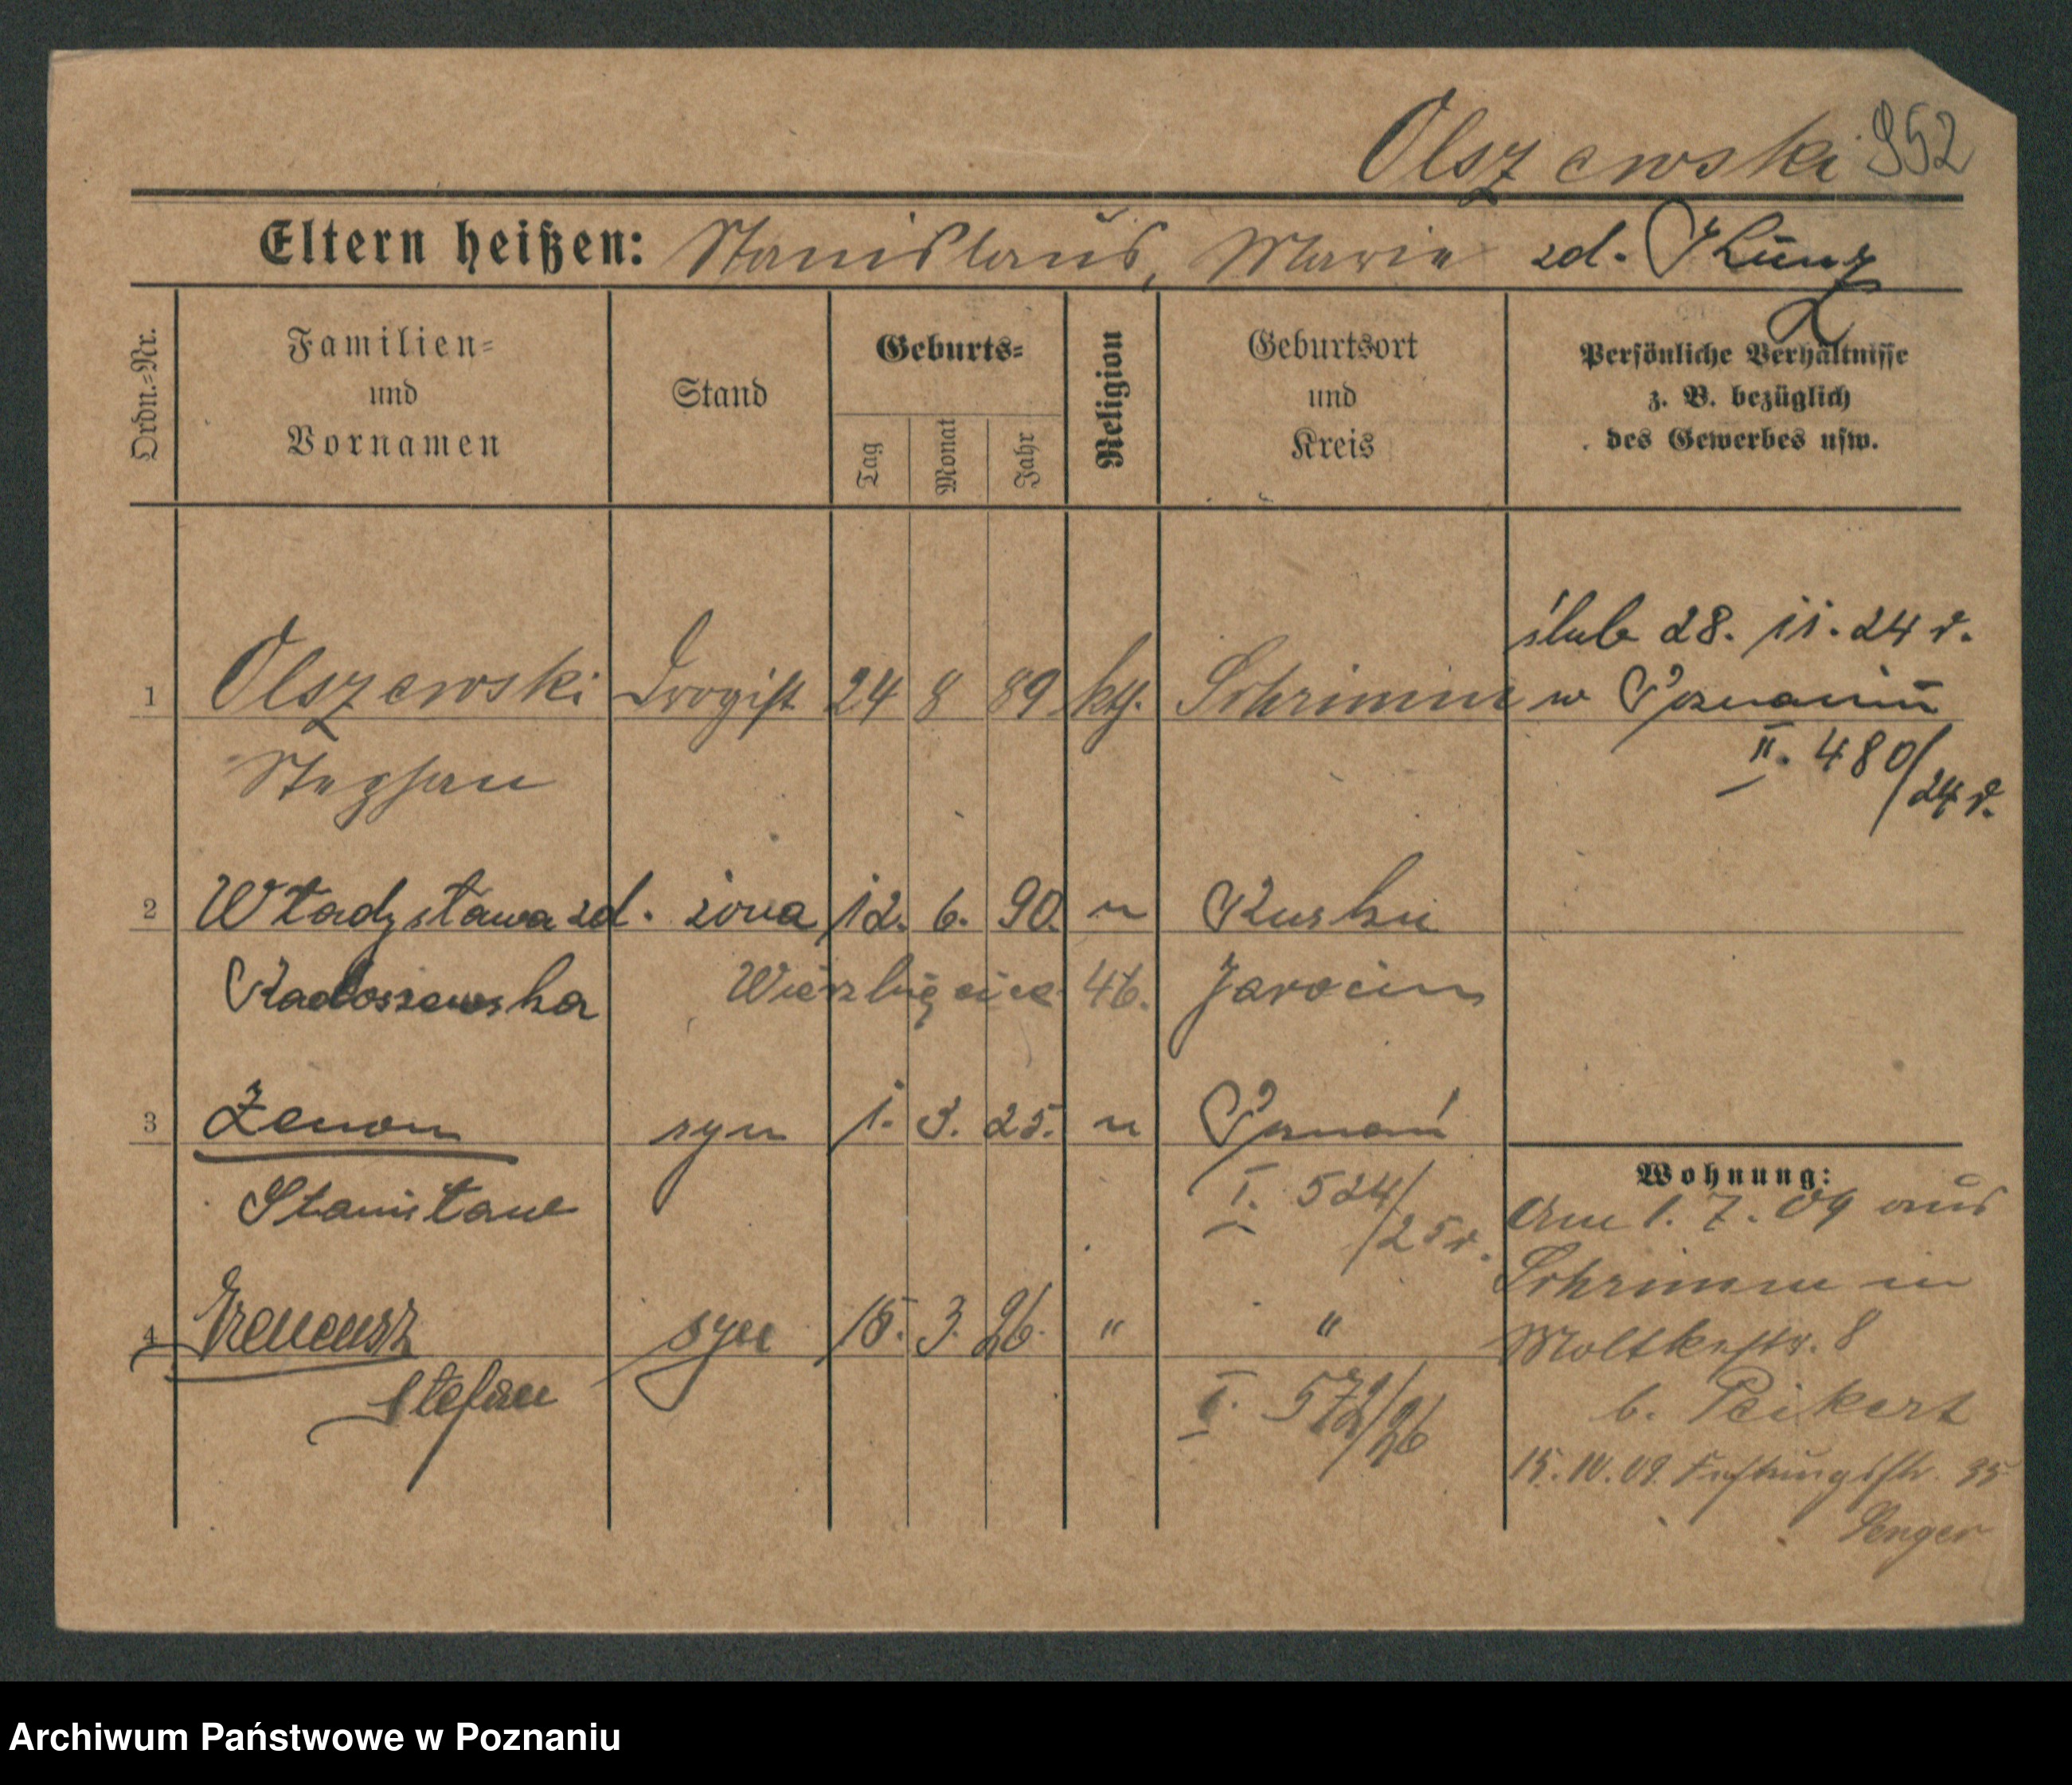 Olszewski 952
Eltern heißen: Stanislaus, Marie zd. Kunz
Ordn.=Nr.
Familien=
und
Vornamen
Stand
Geburts=
Tag
Monat
Jahr
Religion
Geburtsort
und
Kreis
Persönliche Verhältnisse
z. B. bezüglich
des Gewerbes usw.
ślub 28. 11. 24 r.
1 Olszewski Drogist 24 8 89 kth. Schrimm w Poznaniu
II. 480/24 r.
Stephan
2 Władysława zd. żona 12. 6. 90. " 
Radoszewska 46. Jarocin
3 Zenon syn 1. 3. 25. " Poznań
Stanisław I. 524/25 r.
4 Ireneusz syn 15. 3. 26. " "
Stefan I. 572/26
Wohnung:
Am 1. 7. 09 aus
Schrimm in
Moltkestr. 8
b. Peikert
15.10.09. Festungsstr. 35
Senger
Archiwum Państwowe w Poznaniu